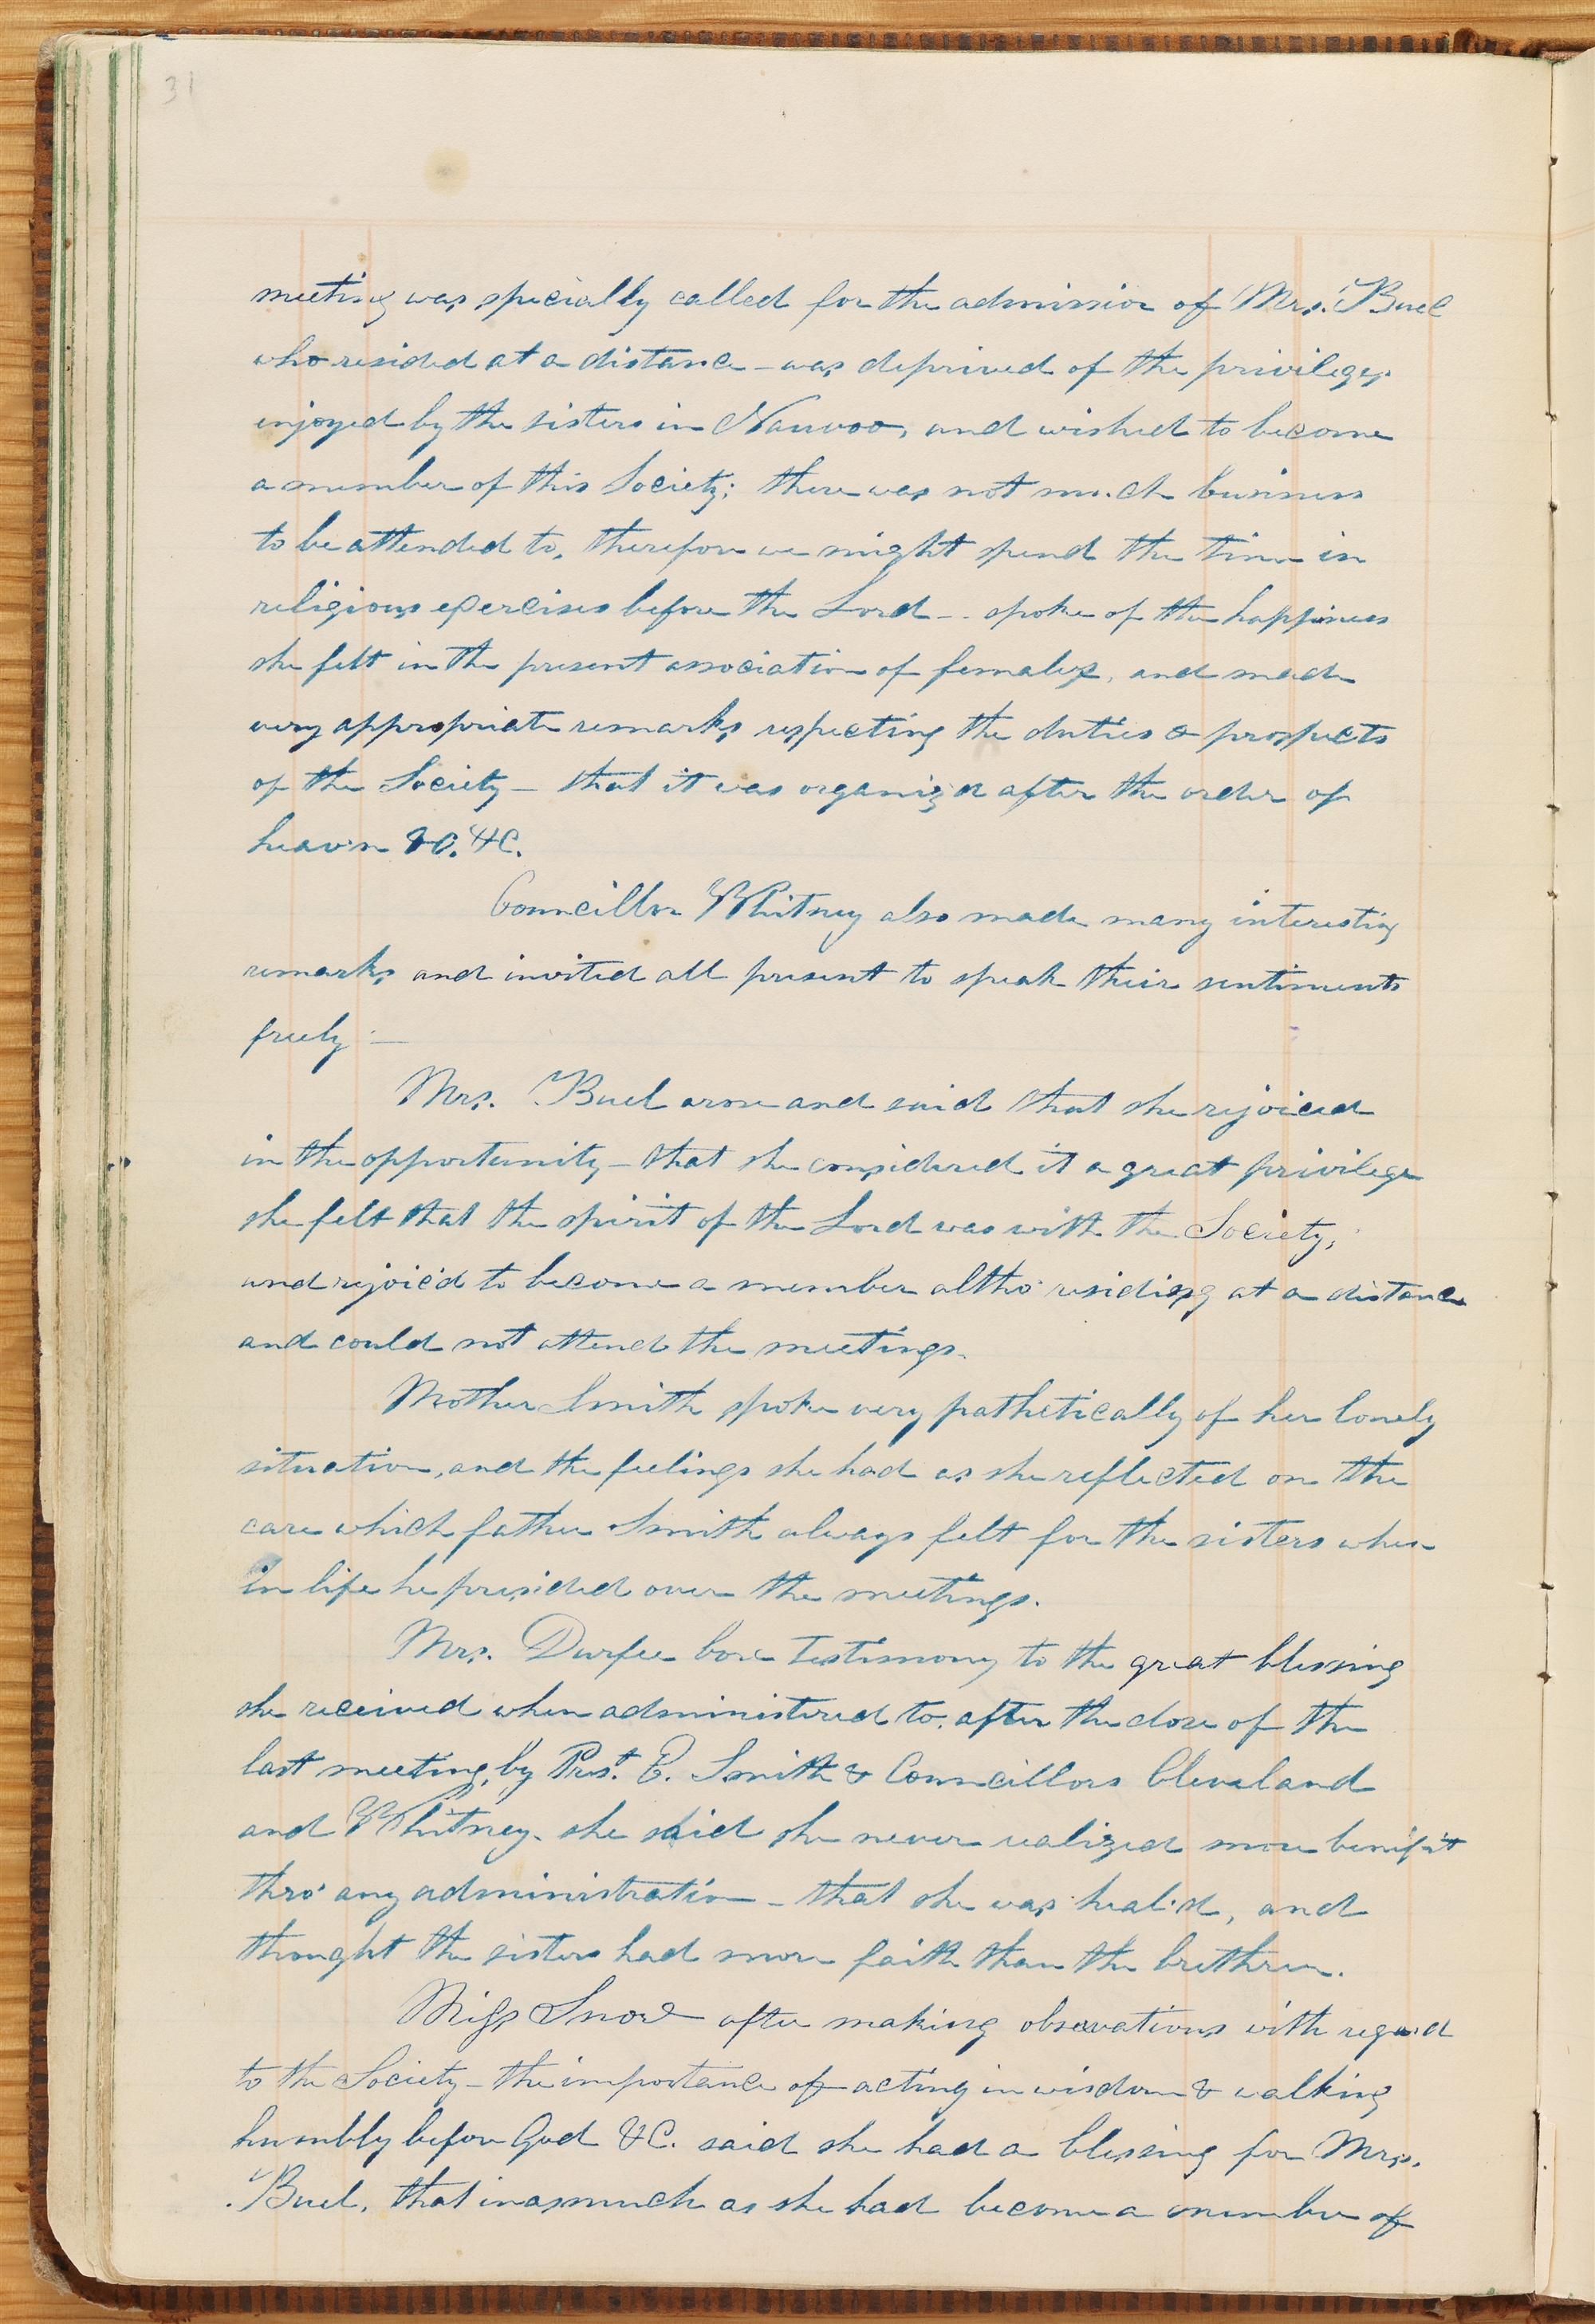 31
meeting was specially called for the admission of Mrs. Buel
who resided at a distance – was deprived of the privileges
enjoyed by the sisters in Nauvoo, and wished to become
a member of this Society; there was not much business
to be attended to, therefore we might spend the time in
religious exercises before the Lord – spoke of the happiness
she felt in the present association of females, and made
very appropriate remarks respecting the duties & prospects
of the Society – that it was organiz'd after the order of
heav'n &C. &C.
Councillor Whitney also made many interesting
remarks and invited all present to speak their sentiments
freely –
Mrs. Buel arose and said that she rejoiced
in the opportunity – that she considered it a great privilege
she felt that the spirit of the Lord was with the Society,
and rejoic'd to become a member altho' residing at a distance
and could not attend the meetings.
Mother Smith spoke very pathetically of her lonely
situation, and the feelings she had as she reflected on the
care which father Smith always felt for the sisters when
in life he presided over the meetings.
Mrs. Durfee bore testimony to the great blessing
she received when administered to after the close of the
last meeting, by Prest. E. Smith & Councillors Cleveland
and Whitney. she said she never realized more benifit
thro' any administration – that she was heal'd, and
thought the sisters had more faith than the brethren.
Miss Snow after making observations with regard
to the Society – the importance of acting in wisdom & walking
humbly before God &C. said she had a blessing for Mrs.
Buel, that inasmuch as she had become a member of